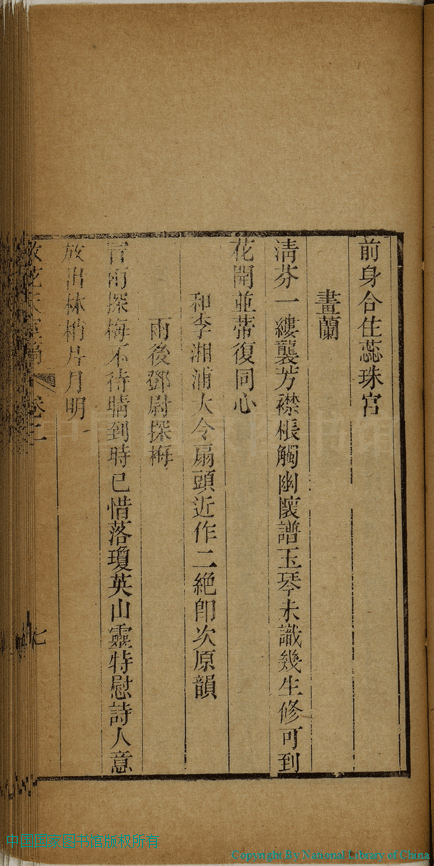 前身合住蕊珠宮
畫蘭
清芬一縷襲芳襟棖觸幽懷譜玉琴未識幾生修可到
花開並蒂復同心
和李湘浦大令扇頭近作二絶卽次原韻
雨後鄧尉探梅
冒雨探梅不待晴到時已惜落瓊英山靈特慰詩人意
放出林梢片月明
卷二
七
中国国家图书馆版权所有
Copyright By National Library of China